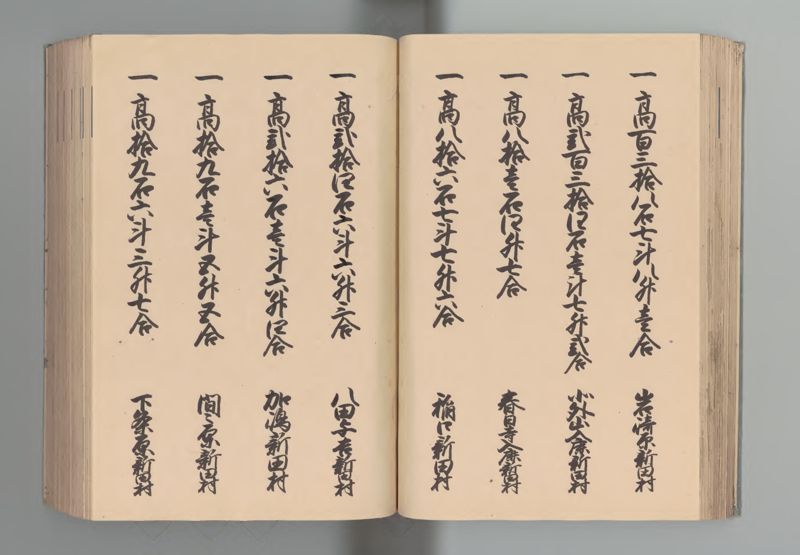 一 高百三拾八石七斗八升壱合 岩崎原新田村
一 高弐百三拾四石壱斗七升弐合 新田村
一 高八拾壱石四升七合 春日寺 新田村
一 高八拾六石七斗七升六合 稲口新田村
一 高弐拾四石六斗六升三合 八田 新田村
一 高弐拾六石壱斗六升四合 加嶋新田村
一 高拾九石壱斗五升五合 間々原新田村
一 高拾九石六斗三升七合 下原新田村